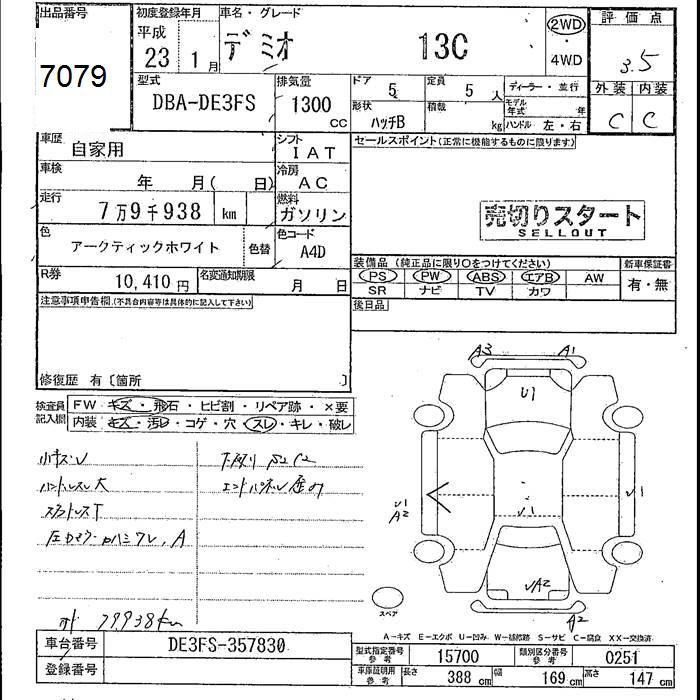 出品番号
7079
初度登録年月
平成
23年 1月
車名・グレード
デミオ 13C
2WD
・
4WD
評価点
3.5
外装 内装
C C
型式
DBA-DE3FS
排気量
1300 CC
ドア
5
定員
5 人
形状
ハッチB
積載
kg
ディーラー・並行
モデル年式 年
ハンドル 左・右
車歴
自家用
シフト
IAT
車検
年 月( 日)
冷房
AC
走行
7万9千938 km
燃料
ガソリン
色
アークティックホワイト
色替
色コード
A4D
R券
10,410円
名変通知期限
月 日
セールスポイント(正常に機能するものに限ります)
売切りスタート
SELLOUT
装備品 (純正品に限り○をつけてください)
PS PW ABS エアB AW
SR ナビ TV カワ
新車保証書
有・無
後日品
注意事項申告欄(不具合内容等は具体的に記入して下さい)
修復歴 有〔箇所 〕
検査員記入欄
FW キズ・飛石・ヒビ割・リペア跡・×要
内装 キズ・汚レ・コゲ・穴・スレ・キレ・破レ
小キズU
ハンドルスレ大
79938km
A3 A1
U1
U1
A2
U1
U1
UA2
A2
スペア
A-キズ E-エクボ U-凹み W-補修跡 S-サビ C-腐食 XX-交換済
車台番号
DE3FS-357830
登録番号
型式指定番号 参考
15700
類別区分番号 参考
0251
車庫証明用 参考
長さ 388 cm
幅 169 cm
高さ 147 cm